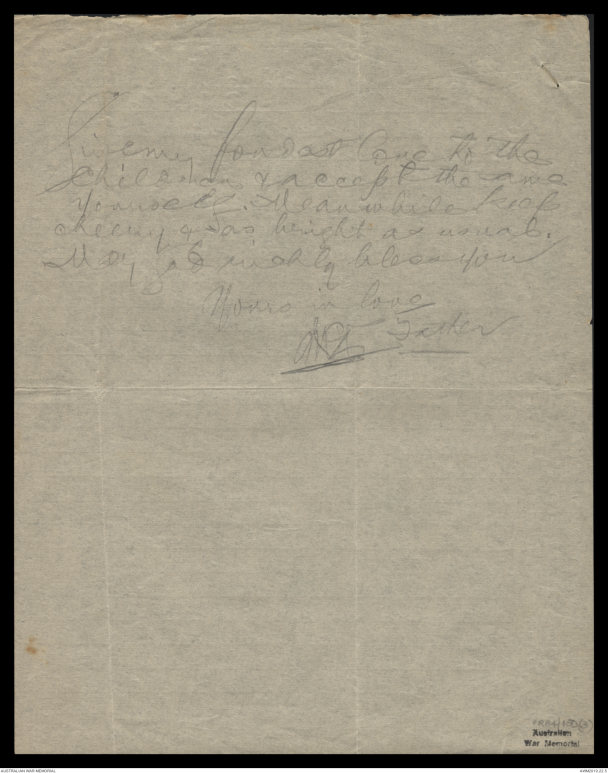 Give my fondest love to the
children & accept the same
yourself. Meanwhile keep
cheery & as bright as usual.
May God richly bless you
Yours in love
Father
PR84/150(3)
Australian
War Memorial
AUSTRALIAN WAR MEMORIAL